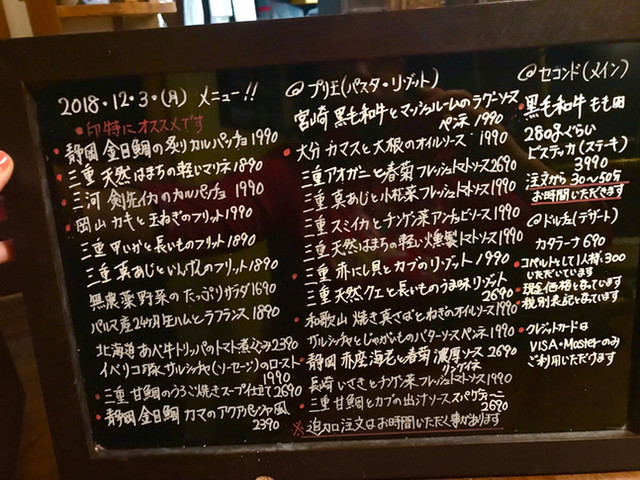 2018・12・3・(月) メニュー!!
●印特にオススメです
●静岡 金目鯛の炙りカルパッチョ1990
●三重 天然はまちの軽いマリネ1890
●三河 剣先イカのカルパッチョ1990
●岡山 カキと玉ねぎのフリット1990
三重 甲いかと長いものフリット1890
三重 真あじといんげんのフリット1890
無農薬野菜のたっぷりサラダ1690
パルマ産24ヶ月生ハムとラフランス1890
北海道 あべ牛トリッパのトマト煮込み2390
イベリコ豚 サルシッチャ(ソーセージ)のロースト
1990
●三重 甘鯛のうろこ焼きスープ仕立て2690
●静岡 金目鯛 カマのアクアパッツァ風
2390
@プリモ(パスタ・リゾット)
宮崎 黒毛和牛とマッシュルームのラグーソース
ペンネ 1990
●大分 カマスと大根のオイルソース 1990
三重 アオガニと春菊 フレッシュトマトソース2690
三重 真あじと小松菜 フレッシュトマトソース1990
三重 スミイカとチンゲン菜アンチョビソース1990
三重 天然はまちの軽い燻製トマトソース1990
三重 赤にし貝とカブのリゾット 1990
三重 天然クエと長いものうま味リゾット
2690
和歌山 焼き真さばとねぎのオイルソース1990
サルシッチャとじゃがいものバターソースペンネ1990
●静岡 赤座海老と春菊 濃厚ソース 2690
リングイネ
長崎 いさきとチンゲン菜フレッシュトマトソース1990
●三重 甘鯛とカブの出汁ソース スパゲティーニ
2690
※追加注文はお時間いただく事があります
@セコンド(メイン)
●黒毛和牛 もも肉
280gぐらい
ビステッカ(ステーキ)
3990
注文から30〜50分
お時間いただきます
@ドルチェ(デザート)
カタラーナ690
●コペルトとして1人様¥300
いただいています
●現金価格となっています
●税別表記となっています
●クレジットカードは
VISA・Masterのみ
ご利用いただけます